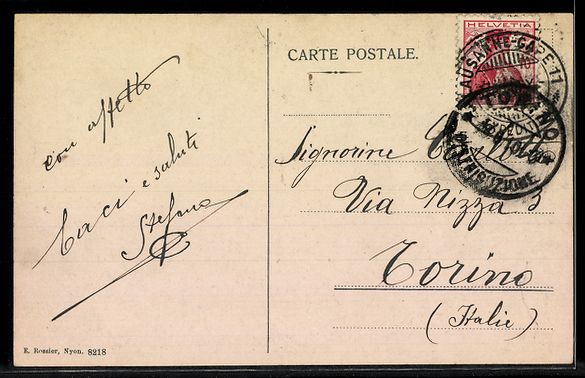 con affetto
baci e saluti
Stefano
E. Rossier, Nyon. 8218
CARTE POSTALE.
HELVETIA
LAUSANNE-GARE 11
TORINO
DISTRIBUZIONE
Signorine
Via Nizza 3
Torino
(Italie)